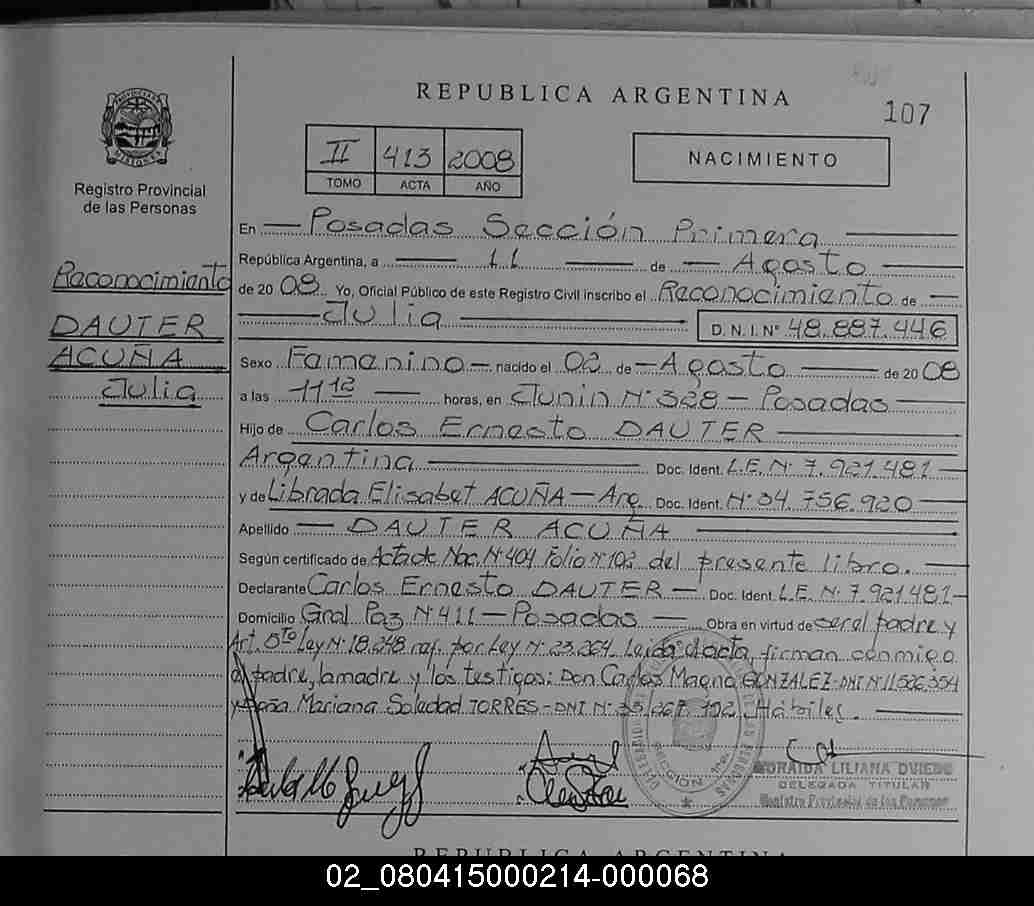 REPUBLICA ARGENTINA
107
PROVINCIA DE
MISIONES
Registro Provincial
de las Personas
II 413 2008
TOMO ACTA AÑO
NACIMIENTO
Reconocimiento
DAUTER
ACUÑA
Julia
En Posadas Sección Primera
República Argentina, a 11 de Agosto
de 20 08 Yo, Oficial Público de este Registro Civil inscribo el Reconocimiento de
Julia D.N.I.Nº 48.887.446
Sexo Femenino nacido el 02 de Agosto de 20 08
a las 11 12 horas, en Junin Nº 328 - Posadas
Hijo de Carlos Ernesto DAUTER
Argentina Doc. Ident. L.E. Nº 7.921.481
y de Librada Elisabet ACUÑA - Arg. Doc. Ident. Nº 34.756.920
Apellido DAUTER ACUÑA
Según certificado de Acta de Nac. Nº 404 Folio Nº 102 del presente libro.
Declarante Carlos Ernesto DAUTER Doc. Ident. L.E. Nº 7.921.481
Domicilio Gral Paz Nº 411 - Posadas Obra en virtud de ser el padre y
Art. 5to Ley Nº 18.248 ref. por Ley Nº 23.264. Leida el acta, firman conmigo
el padre, la madre y los testigos: Don Carlos Magno GONZALEZ - DNI Nº 11.506.354
y Doña Mariana Soledad TORRES - DNI Nº 35.267.102 Hábiles.
ZORAIDA LILIANA OVIEDO
DELEGADA TITULAR
Registro Provincial de las Personas
REPUBLICA ARGENTINA
02_080415000214-000068